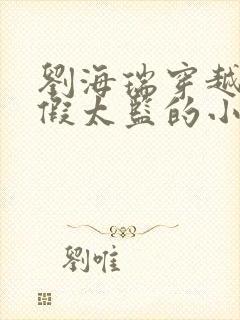 劉海瑞穿越
假太監的小
劉唯